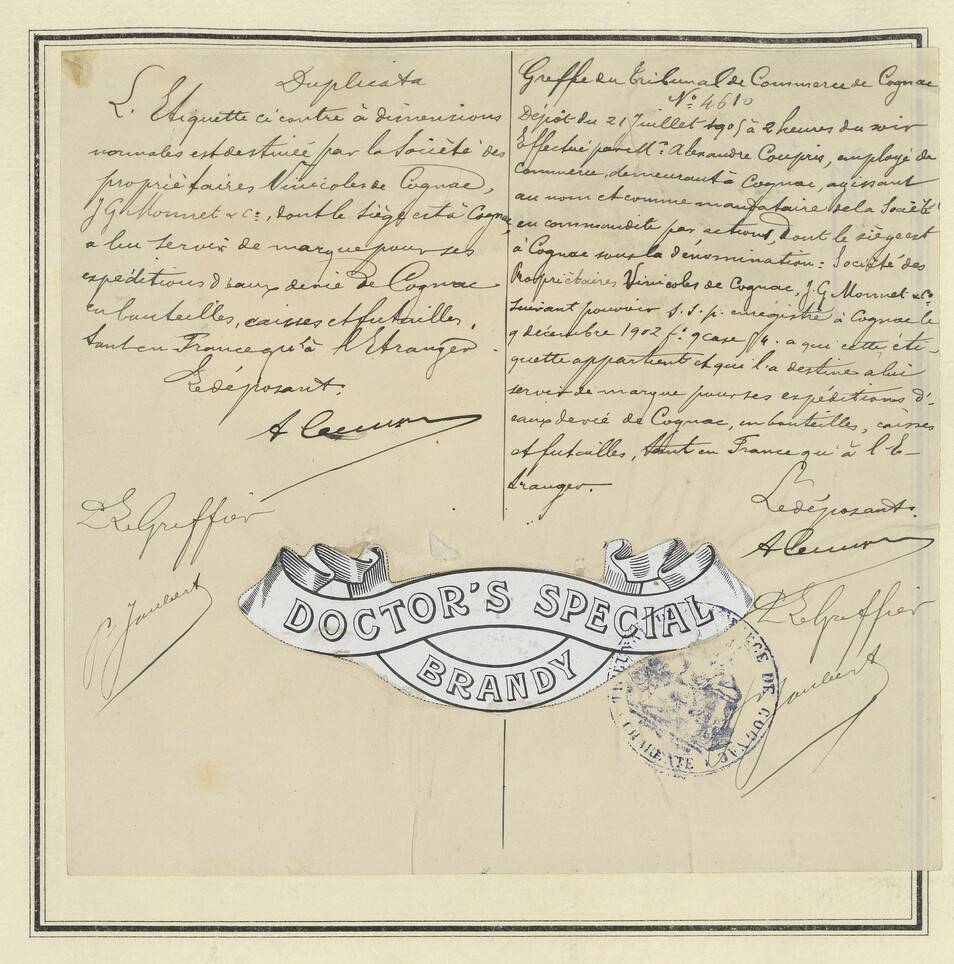 Duplicata
L'Etiquette ci contre à dimensions
normales est destinée par la Société des
propriétaires Vinicoles de Cognac,
J G Monnet & Cie, dont le siège est à Cognac,
a lui servir de marque pour ses
expéditions d'eaux de vie de Cognac
en bouteilles, caisses et futailles,
tant en France qu'à l'Etranger.
Le déposant.
Le Greffier
P. Joubert
Greffe du Tribunal de Commerce de Cognac
No 4610
Dépôt du 21 Juillet 1905 à 2 heures du soir
Effectué par Mr Alexandre Couprie, employé de
Commerce, demeurant à Cognac, agissant
au nom et comme mandataire de la Société
en commandite par actions, dont le siège est
à Cognac sous la dénomination: Société des
Propriétaires Vinicoles de Cognac, J. G Monnet & Co.
suivant pouvoir s. s. p. enregistré à Cognac le
9 décembre 1902 fo 9 case a qui cette éti-
quette appartient et qui l'a destine a lui
servir de marque pour ses expéditions d'
eaux de vie de Cognac, en bouteilles, caisses
et futailles, tant en France qu'à l'E-
tranger.
Le déposant.
Le Greffier
P. Joubert
DOCTOR'S SPECIAL
BRANDY
DE COGNAC
CHARENTE